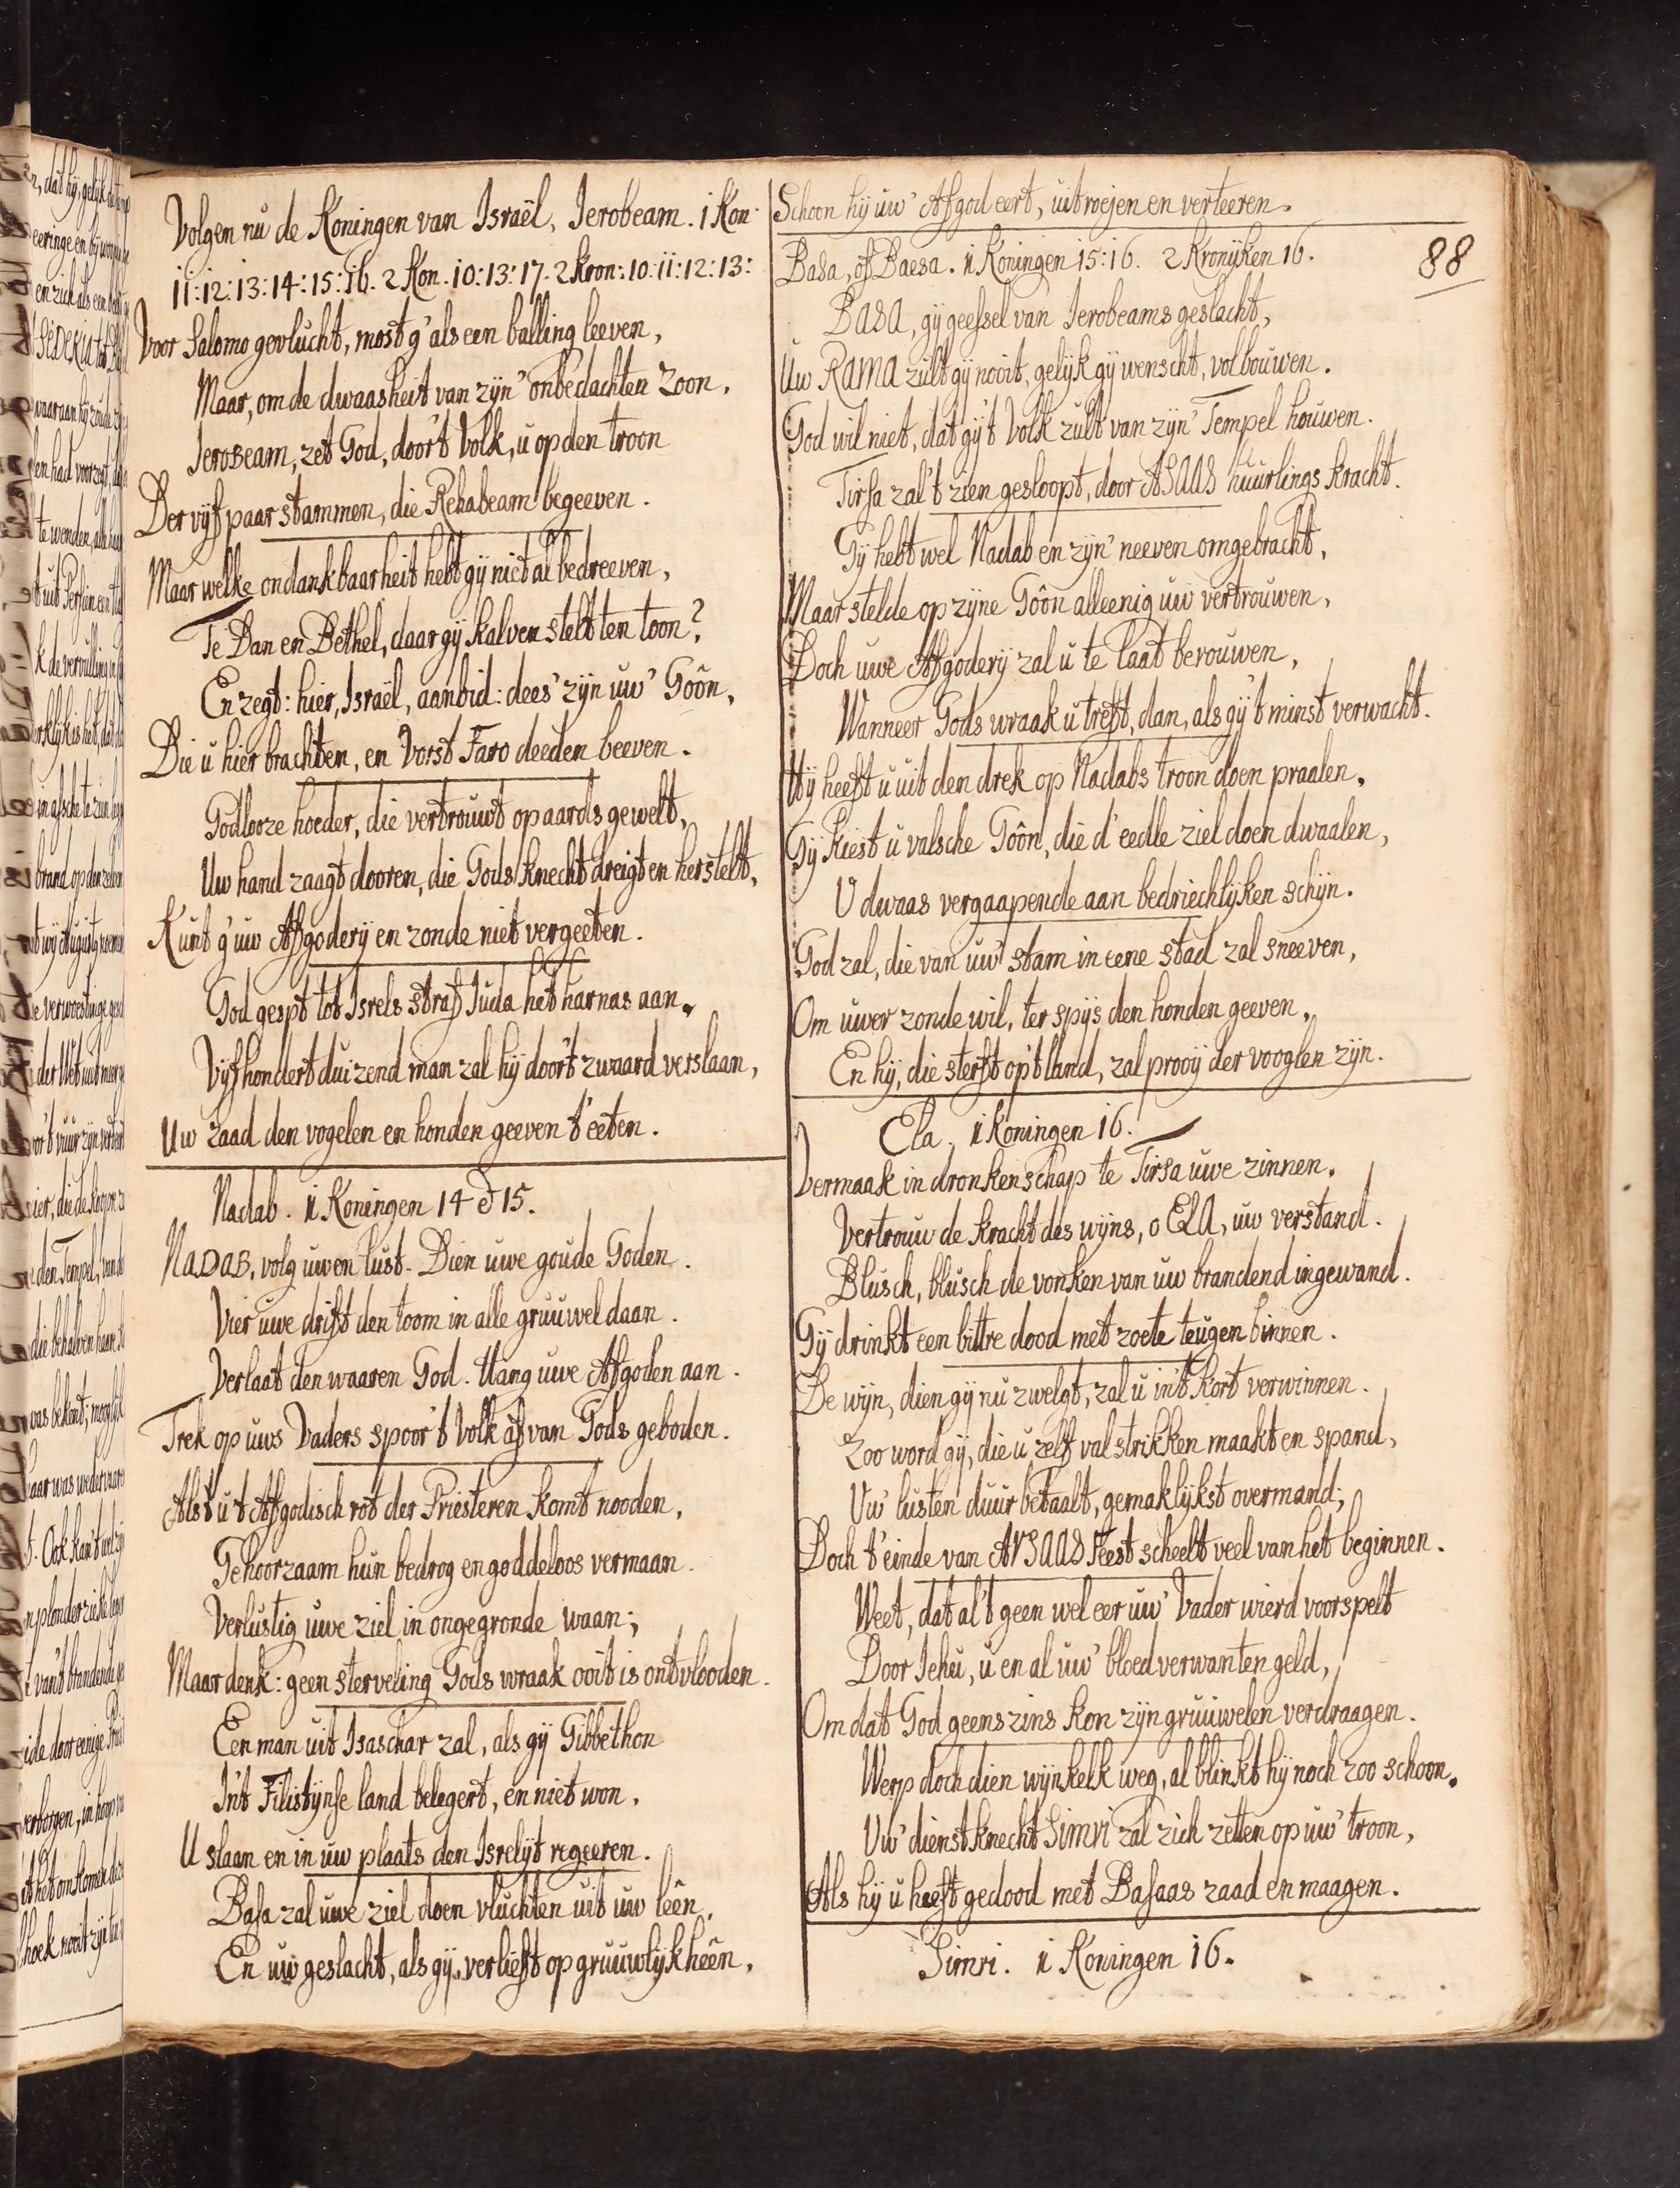 Volgen nu de Koningen van Israël, Ierobeam. 1 Kon.
11:12:13:14:15:16. 2 Kon. 10:13:17. 2 Kron: 10:11:12:13:
Voor Salomo gevlucht, most g' als een balling leeven,
Maar, om de dwaasheit van zijn' onbedachten zoon,
Ierobeam, zet God, door 't Volk, u op den troon
Der vijf paar stammen, die Rehabeam begeeven.
Maar welke ondankbaarheit hebt gij niet al bedreeven,
Te Dan en Bethel, daar gij kalven stelt ten toon?
En zegt: hier, Israël, aanbid: dees' zijn uw' Goôn,
Die u hier brachten, en Vorst Faro deeden beeven.
Godlooze hoeder, die vertrouwt op aards gewelt,
Uw hand zaagt dooren, die Gods knecht dreigt en herstelt,
Kunt g' uw Afgoderij en zonde niet vergeeten.
God gespt tot Isrels straf Iuda het harnas aan,
Vijfhondert duizend man zal hij door 't zwaard verslaan,
Uw zaad den vogelen en honden geeven t' eeten.
Nadab. 1 Koningen 14 & 15.
NADAB, volg uwen lust. Dien uwe goude Goden.
Vier uwe drift den toom in alle gruuwel daan.
Verlaat den waaren God. Hang uwe Afgoden aan.
Trek op uws Vaders spoor 't Volk af van Gods geboden.
Als 't u 't Afgodisch rot der Priesteren komt nooden,
Gehoorzaam hun bedrog en goddeloos vermaan.
Verlustig uwe ziel in ongegronde waan;
Maar denk: geen sterveling Gods wraak ooit is ontvlooden.
Een man uit Isaschar zal, als gij Gibbethon
In 't Filistijnse land belegert, en niet won,
U slaan en in uw plaats den Isrelijt regeeren.
Basa zal uwe ziel doen vluchten uit uw leên,
En uw geslacht, als gij, verlieft op gruuwlijkheên,
Schoon hij uw' Afgod eert, uitroejen en verteeren.
88
Basa, of Baesa. 1 Koningen 15:16. 2 Kronijken 16.
BASA, gij geessel van Ierobeams geslacht,
Uw RAMA zult gij nooit, gelijk gij wenscht, volbouwen.
God wil niet, dat gij 't Volk zult van zijn' Tempel houwen.
Tirsa zal 't zien gesloopt, door ASAAS huurlings kracht.
Gij hebt wel Nadab en zijn' neeven omgebracht,
Maar stelde op zijne Goôn alleenig uw vertrouwen,
Doch uwe Afgoderij zal u te laat berouwen,
Wanneer Gods wraak u treft, dan, als gij 't minst verwacht.
Hij heeft u uit den drek op Nadabs troon doen praalen,
Gij kiest u valsche Goôn, die d' eedle ziel doen dwaalen,
U dwaas vergaapende aan bedriechlijken schijn.
God zal, die van uw' stam in eene stad zal sneeven,
Om uwer zonde wil, ter spijs den honden geeven,
En hij, die sterft op 't land, zal prooij der vooglen zijn.
Ela. 1 Koningen 16.
Vermaak in dronkenschap te Tirsa uwe zinnen,
Vertrouw de kracht des wijns, o ELA, uw verstand.
Blusch, blusch de vonken van uw brandend ingewand.
Gij drinkt een bittre dood met zoete teugen binnen.
De wijn, dien gij nu zwelgt, zal u in 't kort verwinnen.
Zoo word gij, die u zelf valstrikken maakt en spand,
Uw' lusten duur betaalt, gemaklijkst overmand;
Doch t' einde van ARSAAS Feest scheelt veel van het beginnen.
Weet, dat al 't geen wel eer uw' Vader wierd voorspelt
Door Iehu, u en al uw' bloedverwanten geld,
Om dat God geenszins kon zijn gruuwelen verdraagen.
Werp doch dien wijnkelk weg, al blinkt hij noch zoo schoon,
Uw' dienstknecht Simri zal zich zetten op uw' troon,
Als hij u heeft gedood met Basaas zaad en maagen.
Simri. 1 Koningen 16.